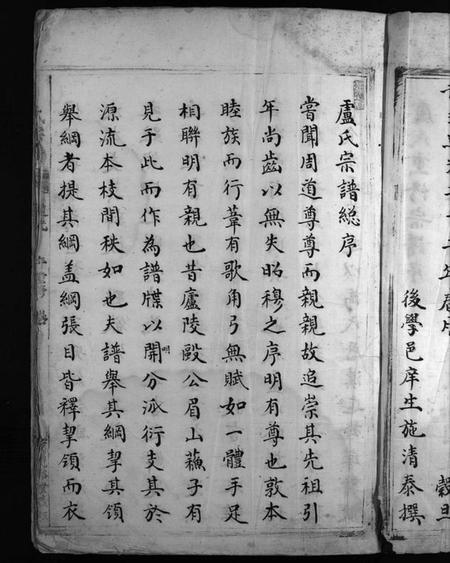 後學邑庠生施清泰撰
盧氏宗譜総序
嘗聞周道尊尊而親親故追崇其先祖引
年尚齒以無失昭穆之序明有尊也敦本
睦族而行葦有歌角弓無賦如一體手足
相聯明有親也昔廬陵毆公眉山蘓子有
見于此而作為譜牒以開分派衍支其於
源流本枝間秩如也夫譜舉其綱挈其領
舉綱者提其綱盖綱張目皆釋挈領而衣